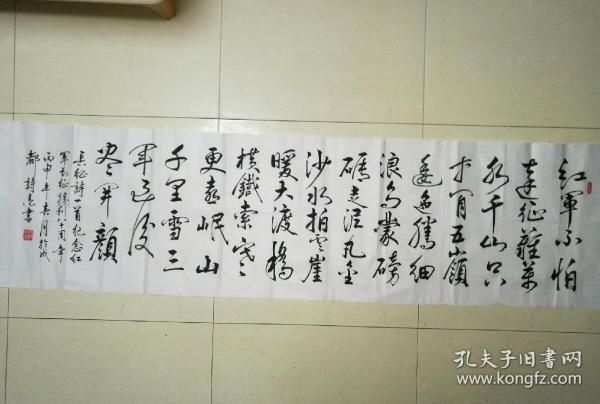 红軍不怕
遠征難萬
水千山只
等闲五嶺
逶迤腾细
浪乌蒙磅
礴走泥丸金
沙水拍雲崖
暖大渡橋
横鐵索寒
更喜岷山
千里雪三
軍过後
尽开颜
長征詩一首纪念红
軍长征勝利八十周年
丙申年春月於成
都 詩亮書
孔夫子旧书网
www.kongfz.com